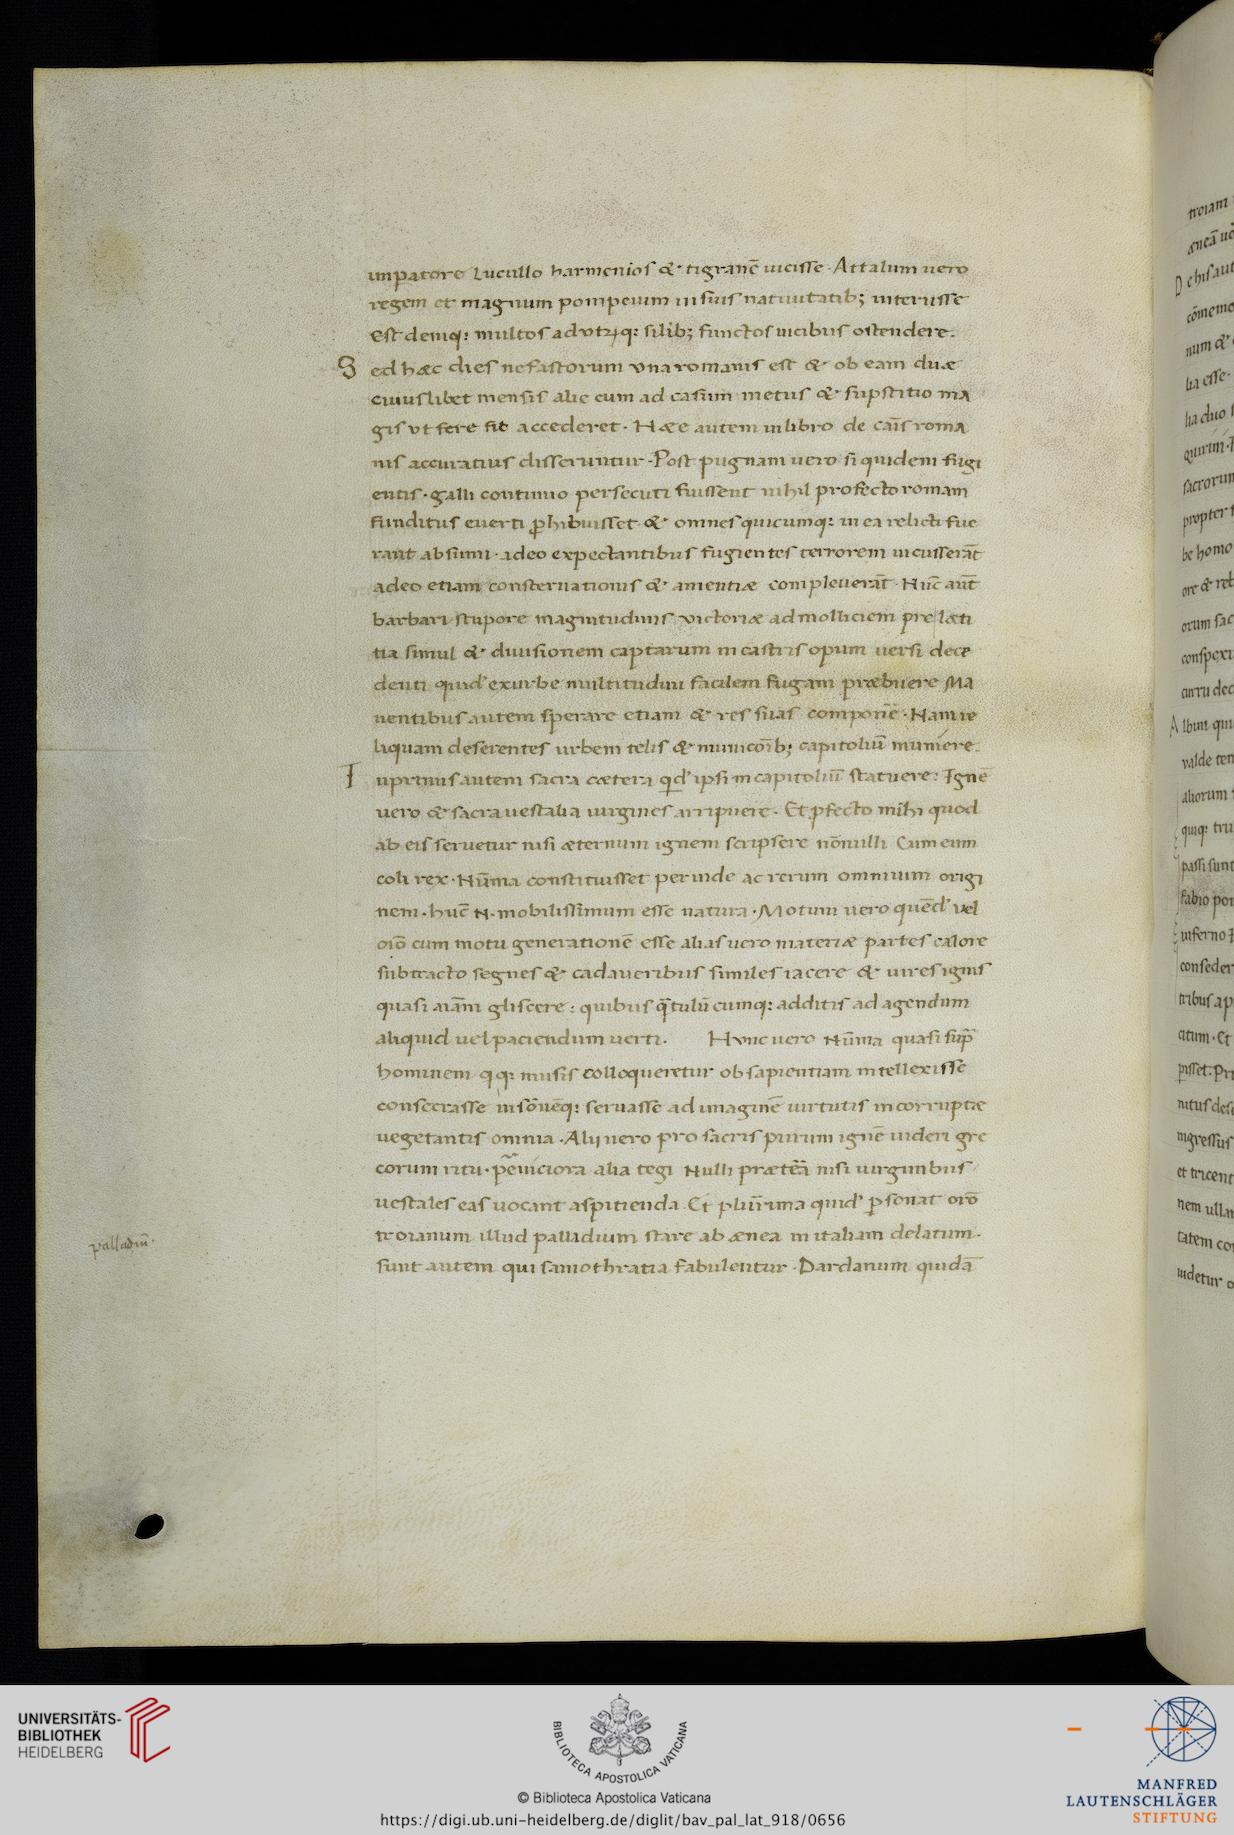 impatore Lucullo harmenios & tigranē uicisse · Attalum uero
regem et magnum pompeium in suis natiuitatib; interisse
Est deniq: multos ad vtrūq: silib; functos uicibus ostendere.
Sed hæc dies nefastorum vna romanis est & ob eam duæ
cuiuslibet mensis alie cum ad casum metus & supstitio ma
gis vt fere fit accederet · Hæe autem in libro de cāis roma
nis accuratius disseruntur · Post pugnam uero si quidem fugi
entis · galli continuo persecuti fuissent nihil profecto romam
funditus euerti phibuisset & omnes quicumq: in ea relicti fue
rant absumi · adeo expectantibus fugientes terrorem incusserāt
adeo etiam consternationis & amentiæ compleuerāt · Nūc aūt
barbari stupore magnitudinis victoriæ ad molliciem pre læti
tia simul & diuisionem captarum in castris opum uersi dece
denti quid' ex urbe multitudini facilem fugam præbuere Ma
nentibus autem sperare etiam & res suas componēē · Nam re
liquam deserentes urbem telis & municōib; capitoliū muniere.
Inprimis autem sacra cætera qd' ipsi in capitoliū statuere: Ignē
uero & sacra uestalia uirgines arripuere · Et pfecto mihi quod
ab eis seruetur nisi æternum ignem scripsere nōnulli Cum eum
coli rex · Nūma constituisset perinde ac rerum omnium origi
nem · hūc N · mobilissimum esse natura · Motum uero quēd' vel
oīo cum motu generationē esse alias uero materiæ partes calore
subtracto segnes & cadaueribus similes iacere & uires ignis
quasi aīam gliscere: quibus qtulūcumq: additis ad agendum
aliquid uel paciendum uerti. Hunc uero Nūma quasi sup
hominem qq: musis colloqueretur ob sapientiam intellexisse
consecrasse insōnēq: seruasse ad imaginē uirtutis incorruptæ
uegetantis omnia · Alij uero pro sacris purum ignē uideri gre
corum ritu · alia tegi Nulli præteā nisi uirginibus
uestales eas uocant aspitienda Et plurima quid' psonat orō
troianum illud palladium stare ab ænea in italiam delatum ·
sunt autem qui samothratia fabulentur · Dardanum quidā
palladiū ·
troiam
æneā uo
De his aut
cōmemo
num &
lia esse ·
lia duo s
quirin ·
sacrorum
propter
be homo
ore & reb
orum sac
conspexi
curru dec
Albini qui
valde ten
aliorum
quiq: tru
passi sunt
fabio por
inferno
conseder
tribus ap
citum · Et
pisset: pri
nitus dese
ingressus
et tricent
nem ullam
tatem con
uidetur
UNIVERSITÄTS-
BIBLIOTHEK
HEIDELBERG
BIBLIOTECA APOSTOLICA VATICANA
© Biblioteca Apostolica Vaticana
https://digi.ub.uni-heidelberg.de/diglit/bav_pal_lat_918/0656
MANFRED
LAUTENSCHLÄGER
STIFTUNG